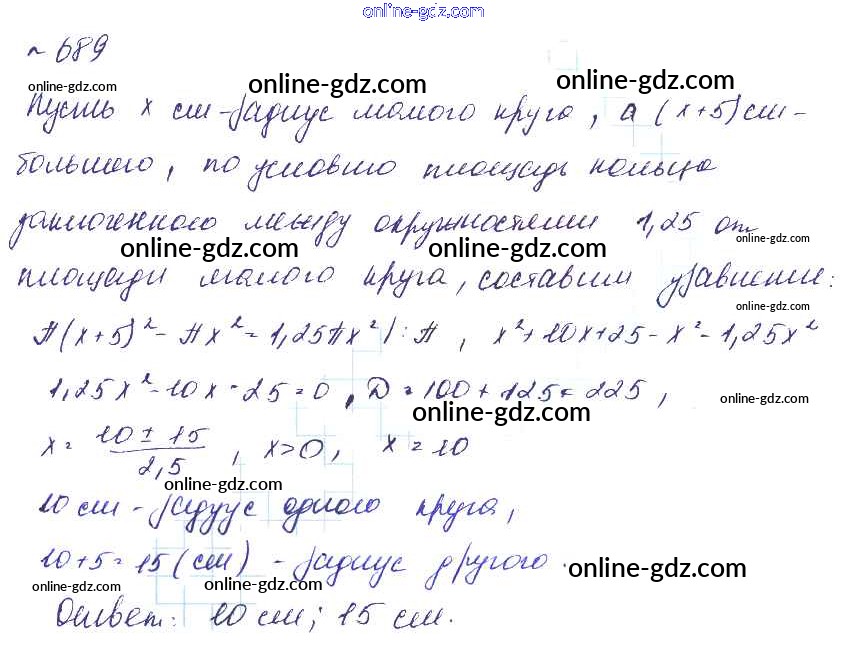 online-gdz.com
№ 689
online-gdz.com online-gdz.com online-gdz.com
Пусть x см - радиус малого круга, а (x+5) см -
большого, по условию площадь кольца
заключенного между окружностями 1,25 от
online-gdz.com online-gdz.com online-gdz.com
площади малого круга, составим уравнение:
online-gdz.com
π(x+5)² - πx² = 1,25πx² | : π , x² + 10x + 25 - x² - 1,25x²
1,25x² - 10x - 25 = 0 , D = 100 + 125 = 225 ,
online-gdz.com online-gdz.com
x = (10 ± 15)/2,5 , x>0, x = 10
online-gdz.com
10 см - радуус одного круга,
10+5 = 15 (см) - радиус другого.
online-gdz.com online-gdz.com online-gdz.com
Ответ: 10 см; 15 см.